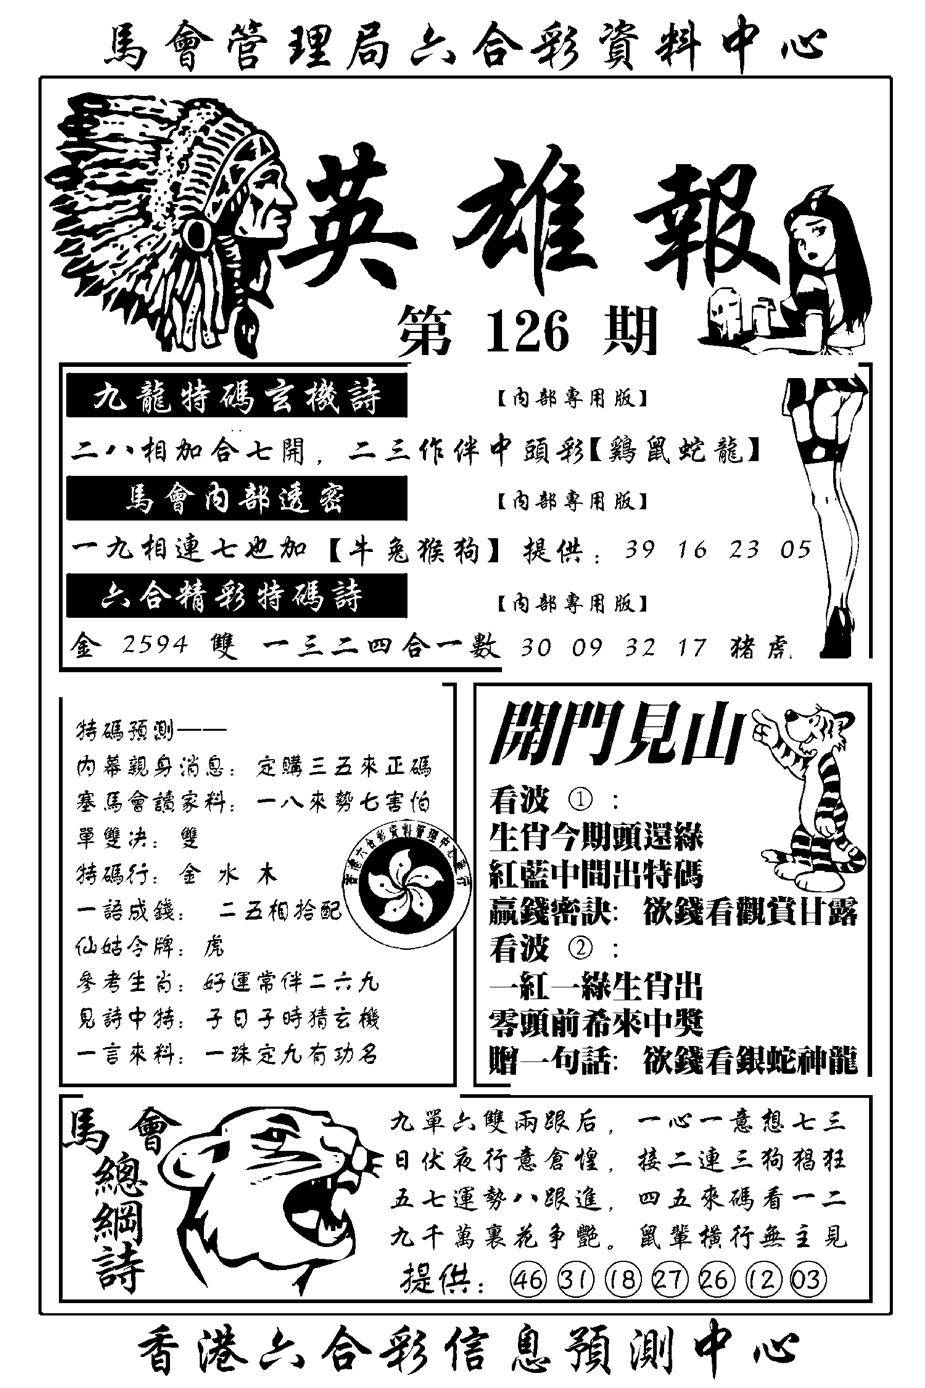 馬會管理局六合彩資料中心
英雄報
第 126 期
九龍特碼玄機詩 【內部專用版】
二八相加合七開，二三作伴中頭彩【鷄鼠蛇龍】
馬會內部透密 【內部專用版】
一九相連七也加【牛兔猴狗】提供：39 16 23 05
六合精彩特碼詩 【內部專用版】
金 2594 雙 一三二四合一數 30 09 32 17 猪虎
特碼預測——
內幕親身消息：定購三五來正碼
塞馬會讀家料：一八來勢七害怕
單雙决：雙
特碼行：金 水 木
一語成錢： 二五相拾配
仙姑令牌：虎
參考生肖：好運常伴二六九
見詩中特：子日子時猜玄機
一言來料：一珠定九有功名
開門見山
看波 ①：
生肖今期頭還綠
紅藍中間出特碼
贏錢密訣：欲錢看觀賞甘露
看波 ②：
一紅一綠生肖出
零頭前希來中獎
贈一句話：欲錢看銀蛇神龍
馬會
總綱詩
九單六雙兩跟后，一心一意想七三
日伏夜行意倉惶，接二連三狗猖狂
五七運勢八跟進，四五來碼看一二
九千萬裏花争艷。鼠輩横行無主見
提供：㊻ ㉛ ⑱ ㉗ ㉖ ⑫ 03
香港六合彩信息預測中心